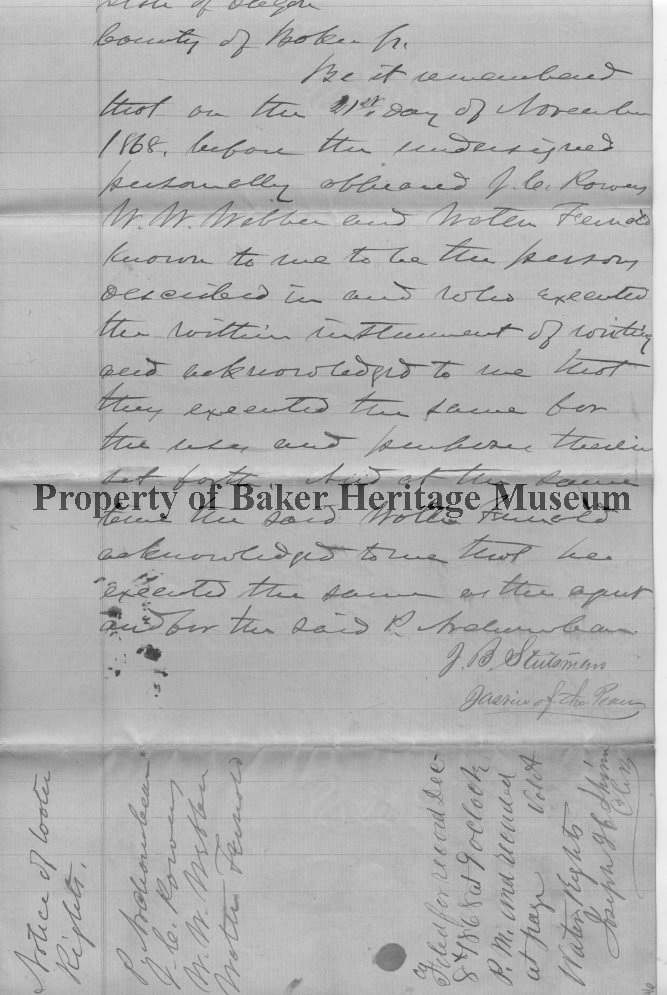 State of Oregon
County of Baker Ss.
Be it remembered
that on the 21st day of November
1868, before the undersigned
personally appeared J. C. Rowey
W. W. Webber and Walter Fernald
known to me to be the persons
described in and who executed
the within instrument of writing
and acknowledged to me that
they executed the same for
the uses and purposes therein
set forth And at the same
Property of Baker Heritage Museum
time the said Walter Fernald
acknowledged to me that he
executed the same as the agent
and for the said P. Archambeau
J. B. Stutsman
Justice of the Peace
Notice of Water
Rights.
P. Archambeau
J. C. Rowey
W. W. Webber
Walter Fernald
Filed for record Dec
8th 1868 at 9 oclock
P. M. and recorded
at page Vol A
Water Rights
Joseph H Shinn
Clerk